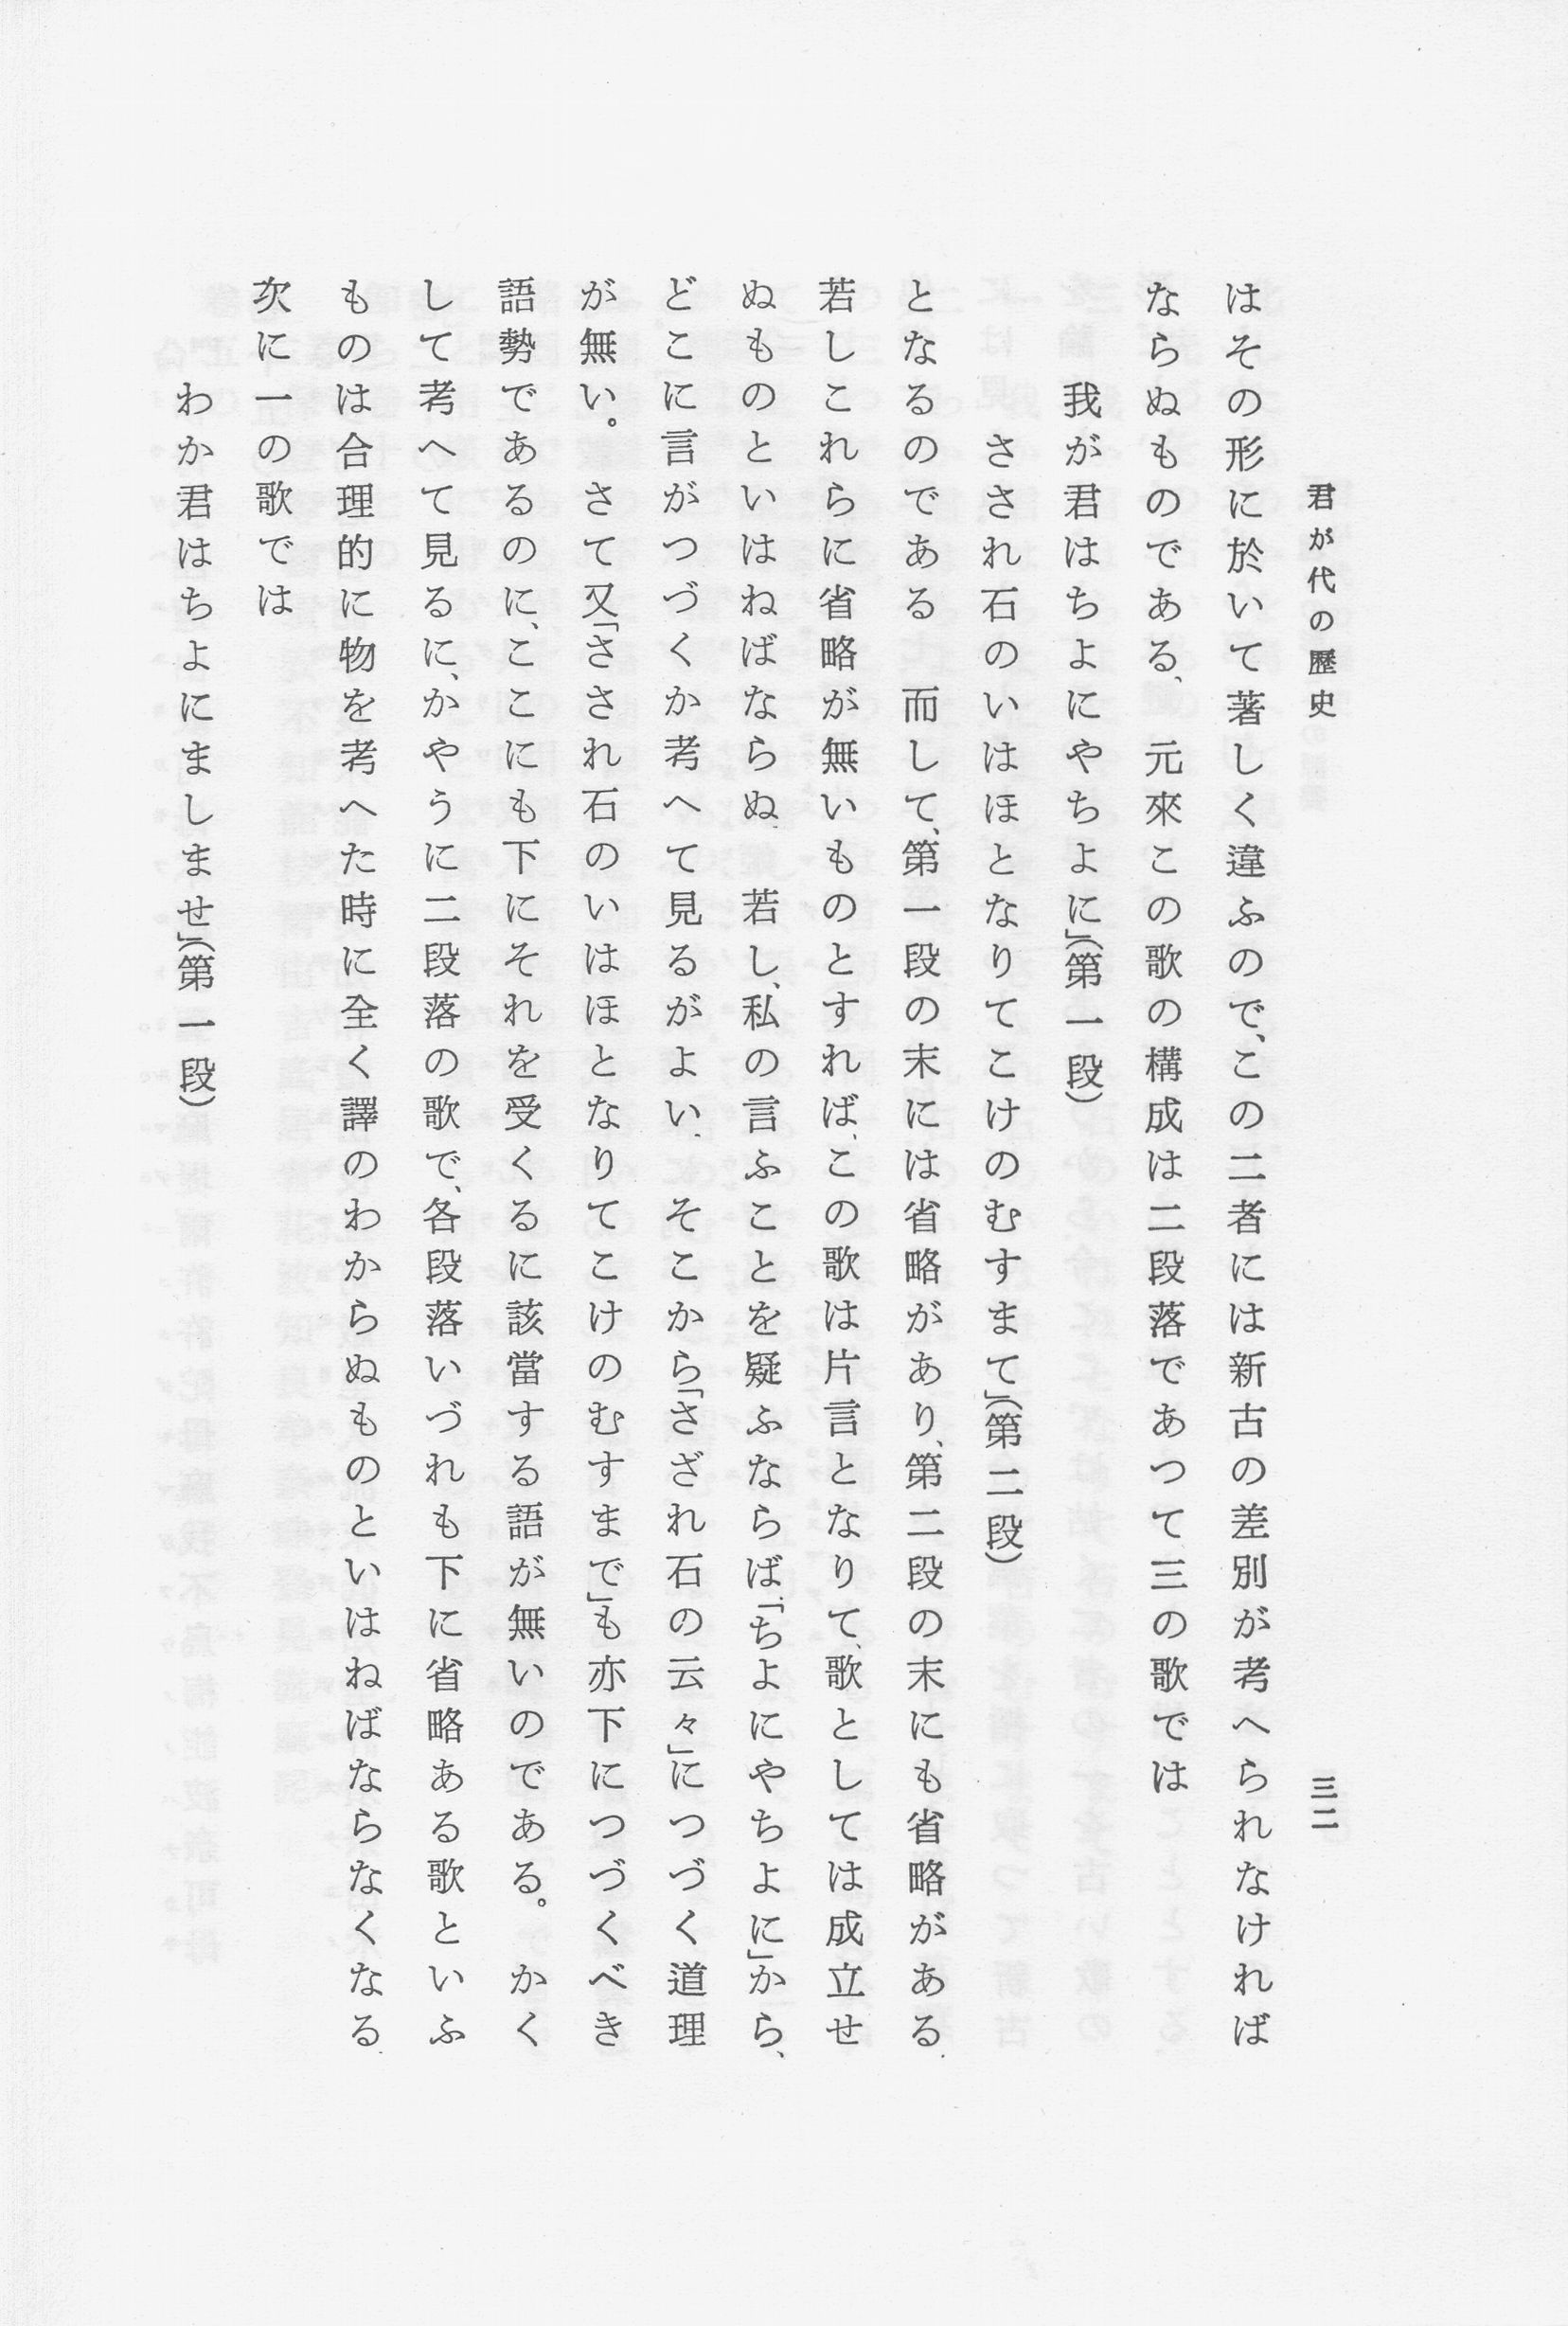 君が代の歴史
三二
はその形に於いて著しく違ふので、この二者には新古の差別が考へられなければ
ならぬものである、元來この歌の構成は二段落であつて三の歌では
我が君はちよにやちよに」(第一段)
さされ石のいはほとなりてこけのむすまて」(第二段)
となるのである 而して、第一段の末には省略があり、第二段の末にも省略がある.
若しこれらに省略が無いものとすれば、この歌は片言となりて、歌としては成立せ
ぬものといはねばならぬ. 若し、私の言ふことを疑ふならば、「ちよにやちよに」から、
どこに言がつづくか考へて見るがよい. そこから「さざれ石の云々」につづく道理
が無い。さて又「さされ石のいはほとなりてこけのむすまで」も亦下につづくべき
語勢であるのに、ここにも下にそれを受くるに該當する語が無いのである。かく
して考へて見るに、かやうに二段落の歌で、各段落いづれも下に省略ある歌といふ
ものは合理的に物を考へた時に全く譯のわからぬものといはねばならなくなる.
次に一の歌では
わか君はちよにましませ」(第一段)